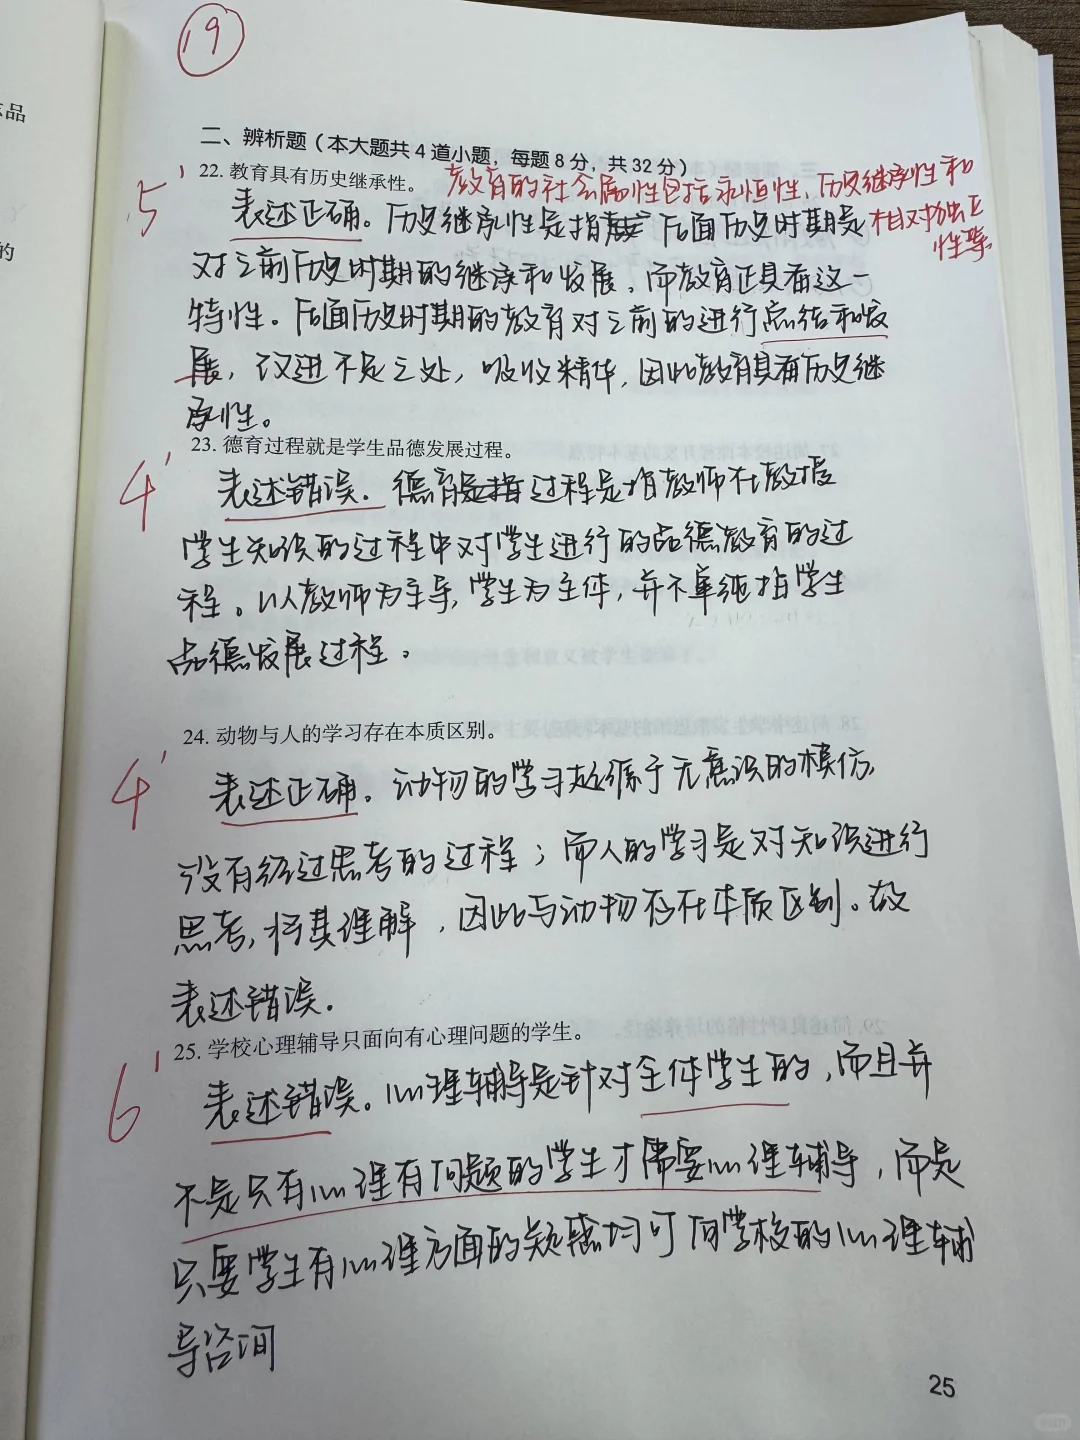 19
志品
的
二、辨析题（本大题共4道小题，每题8分，共32分）
5'
22. 教育具有历史继承性。
教育的社会属性包括永恒性、历史继承性和
相对独立
性等
表述正确。历史继承性是指 后面历史时期是
对之前历史时期的继承和发展，而教育正具有这一
特性。后面历史时期的教育对之前的进行总结和发
展，改进不足之处，吸收精华，因此教育具有历史继
承性。
4'
23. 德育过程就是学生品德发展过程。
表述错误。德育过程是指教师在教授
学生知识的过程中对学生进行的品德教育的过
程。以教师为主导，学生为主体，并不单纯指学生
品德发展过程。
4'
24. 动物与人的学习存在本质区别。
表述正确。动物的学习起源于无意识的模仿，
没有经过思考的过程；而人的学习是对知识进行
思考，将其理解，因此与动物存在本质区别。故
表述错误。
6'
25. 学校心理辅导只面向有心理问题的学生。
表述错误。心理辅导是针对全体学生的，而且并
不是只有心理有问题的学生才需要心理辅导，而是
只要学生有心理方面的疑惑均可向学校的心理辅
导咨询
25